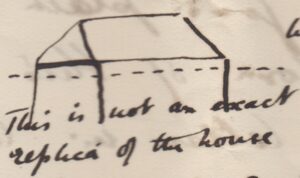 This is not an exact
replica of the house